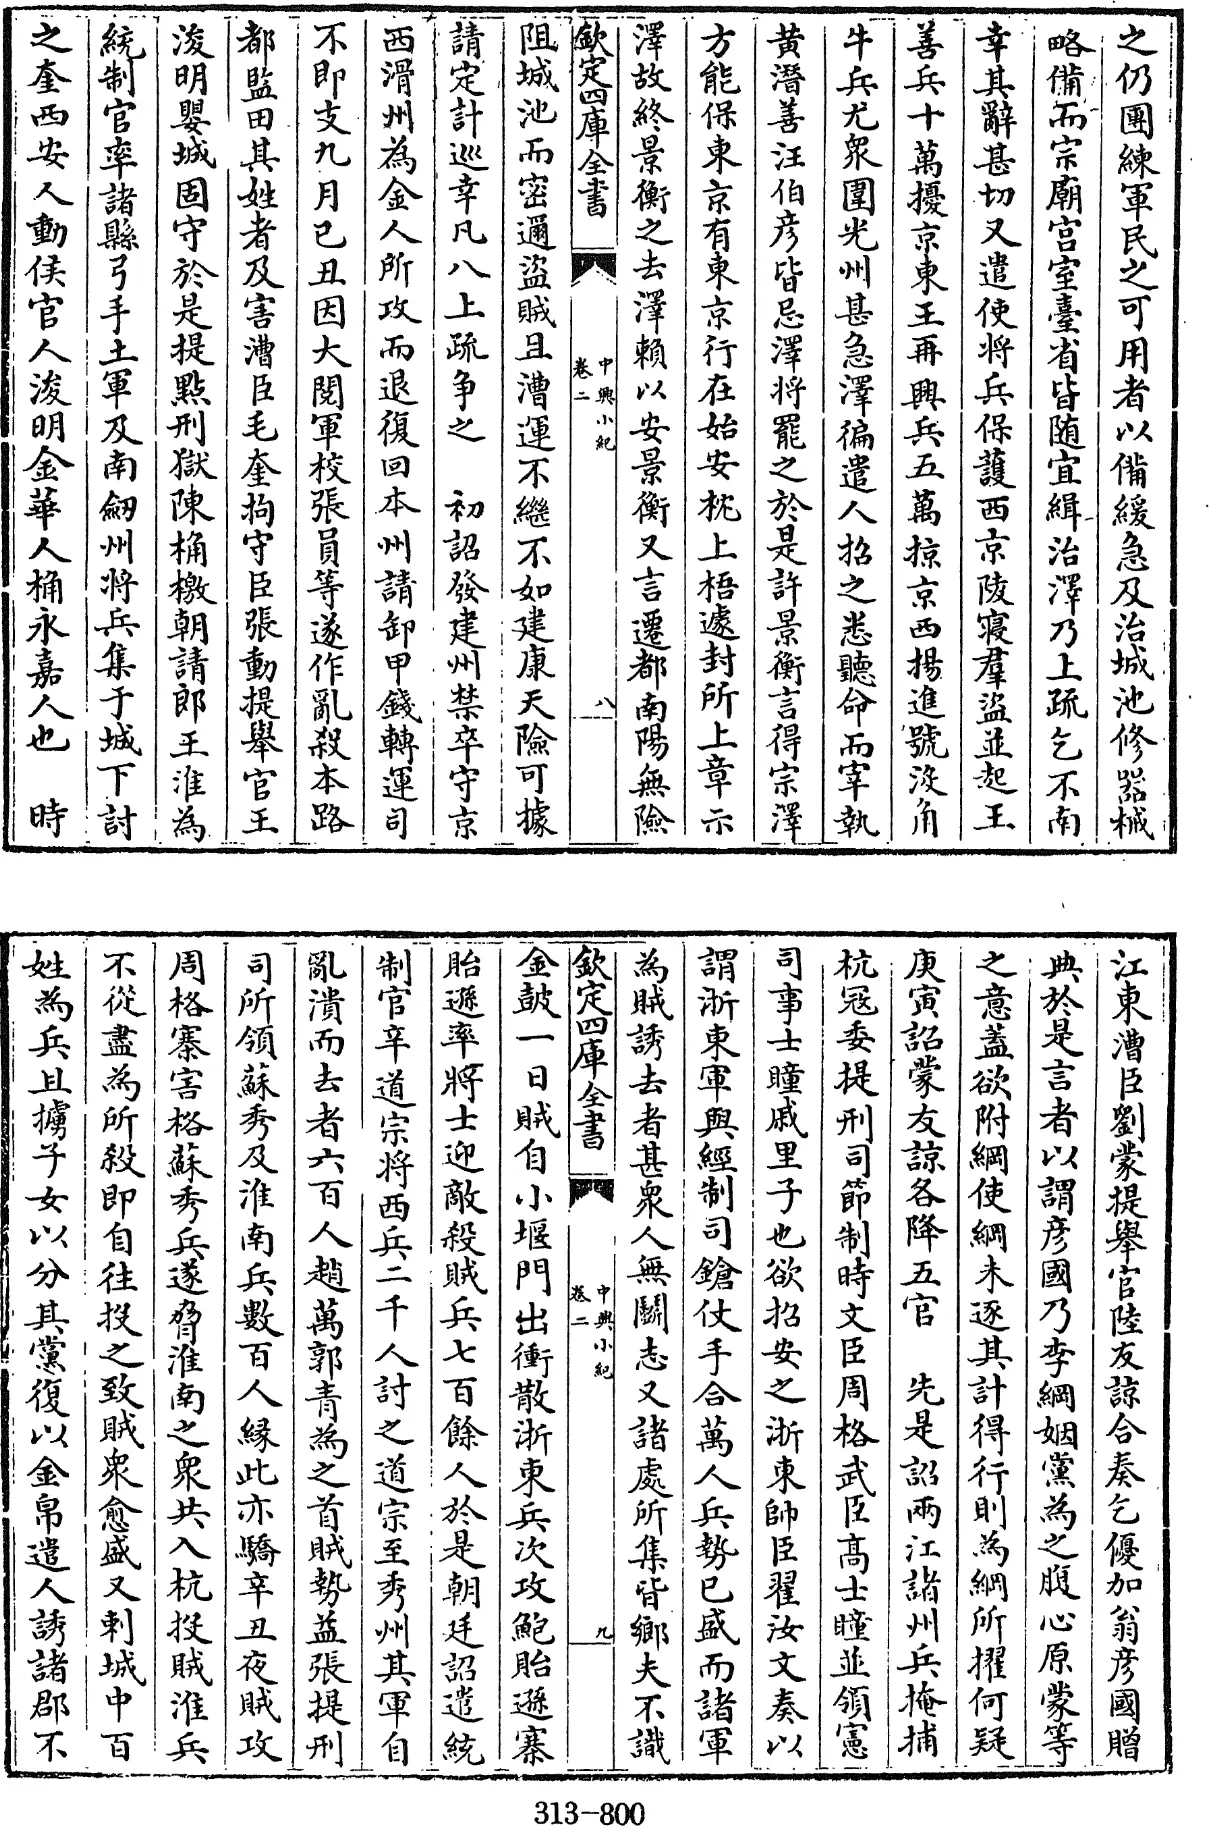 之仍團練軍民之可用者以備緩急及治城池修器械
略備而宗廟宫室臺省皆随宜緝治澤乃上疏乞不南
幸其辭甚切又遣使将兵保護西京陵寝羣盜並起王
善兵十萬擾京東王再興兵五萬掠京西揚進號沒角
牛兵尤衆圍光州甚急澤徧遣人招之悉聽命而宰執
黄潛善汪伯彦皆忌澤将罷之於是許景衡言得宗澤
方能保東京有東京行在始安枕上梧遽封所上章示
澤故終景衡之去澤頼以安景衡又言遷都南陽無險
欽定四庫全書
中興小紀
卷二
八
阻城池而密邇盜賊且漕運不繼不如建康天險可據
請定計巡幸凡八上疏争之 初詔發建州禁卒守京
西滑州為金人所攻而退復回本州請卸甲錢轉運司
不即支九月已丑因大閱軍校張員等遂作亂殺本路
都監田其姓者及害漕臣毛奎拘守臣張動提舉官王
浚明嬰城固守於是提點刑獄陳桷檄朝請郎王淮為
統制官率諸縣弓手土軍及南劒州将兵集于城下討
之奎西安人動侯官人浚明金華人桷永嘉人也 時
江東漕臣劉蒙提舉官陸友諒合奏乞優加翁彦國贈
典於是言者以謂彦國乃李綱姻黨為之腹心原蒙等
之意蓋欲附綱使綱未逐其計得行則為綱所擢何疑
庚寅詔蒙友諒各降五官 先是詔兩江諸州兵掩捕
杭冦委提刑司節制時文臣周格武臣髙士瞳並領憲
司事士瞳戚里子也欲招安之浙東帥臣翟汝文奏以
謂浙東軍與經制司鎗仗手合萬人兵勢已盛而諸軍
為賊誘去者甚衆人無鬭志又諸處所集皆鄉夫不識
欽定四庫全書
中興小紀
卷二
九
金鼓一日賊自小堰門出衝散浙東兵次攻鮑貽遜寨
貽遜率將士迎敵殺賊兵七百餘人於是朝廷詔遣統
制官辛道宗将西兵二千人討之道宗至秀州其軍自
亂潰而去者六百人趙萬郭青為之首賊勢益張提刑
司所領蘇秀及淮南兵數百人縁此亦驕辛丑夜賊攻
周格寨害格蘇秀兵遂脅淮南之衆共入杭投賊淮兵
不從盡為所殺即自往投之致賊衆愈盛又刺城中百
姓為兵且擄子女以分其黨復以金帛遣人誘諸郡不
313-800